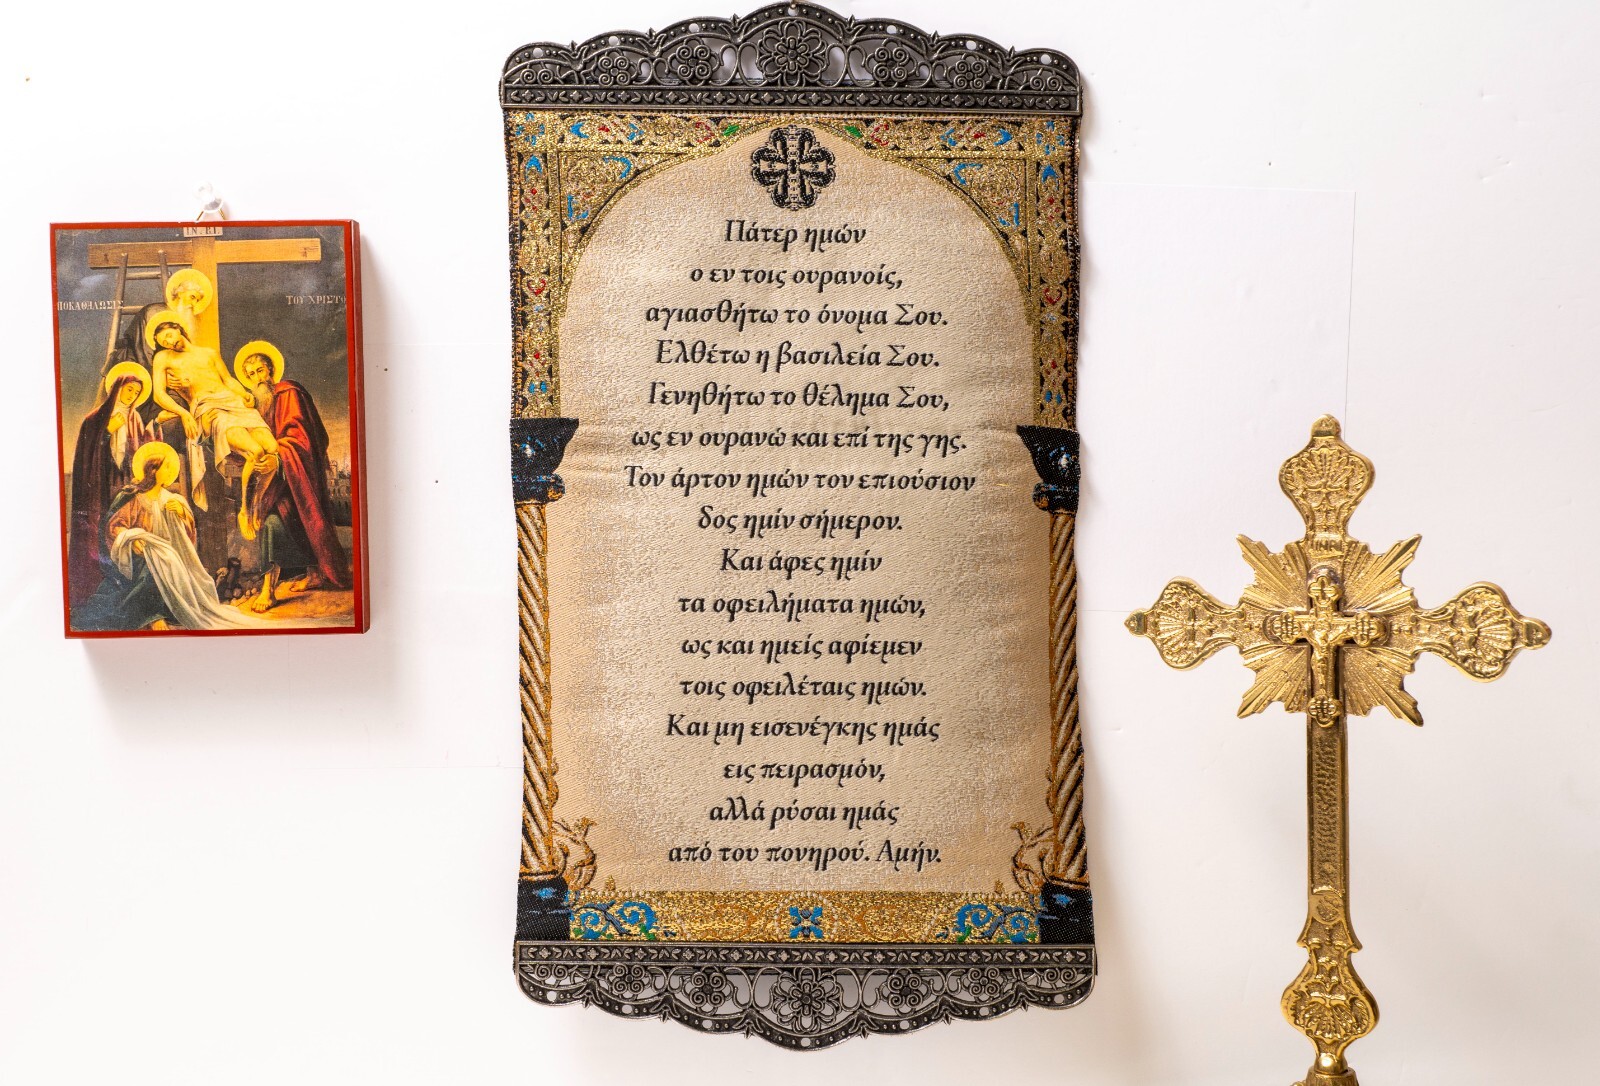 IN.BI.
ΠΟΚΑΘΗΛΩΣΙΣ
ΤΟΥ ΧΡΙΣΤΟ
Πάτερ ημών
ο εν τοις ουρανοίς,
αγιασθήτω το όνομα Σου.
Ελθέτω η βασιλεία Σου.
Γενηθήτω το θέλημα Σου,
ως εν ουρανώ και επί της γης.
Τον άρτον ημών τον επιούσιον
δος ημίν σήμερον.
Και άφες ημίν
τα οφειλήματα ημών,
ως και ημείς αφίεμεν
τοις οφειλέταις ημών.
Και μη εισενέγκης ημάς
εις πειρασμόν,
αλλά ρύσαι ημάς
από του πονηρού. Αμήν.
INRI